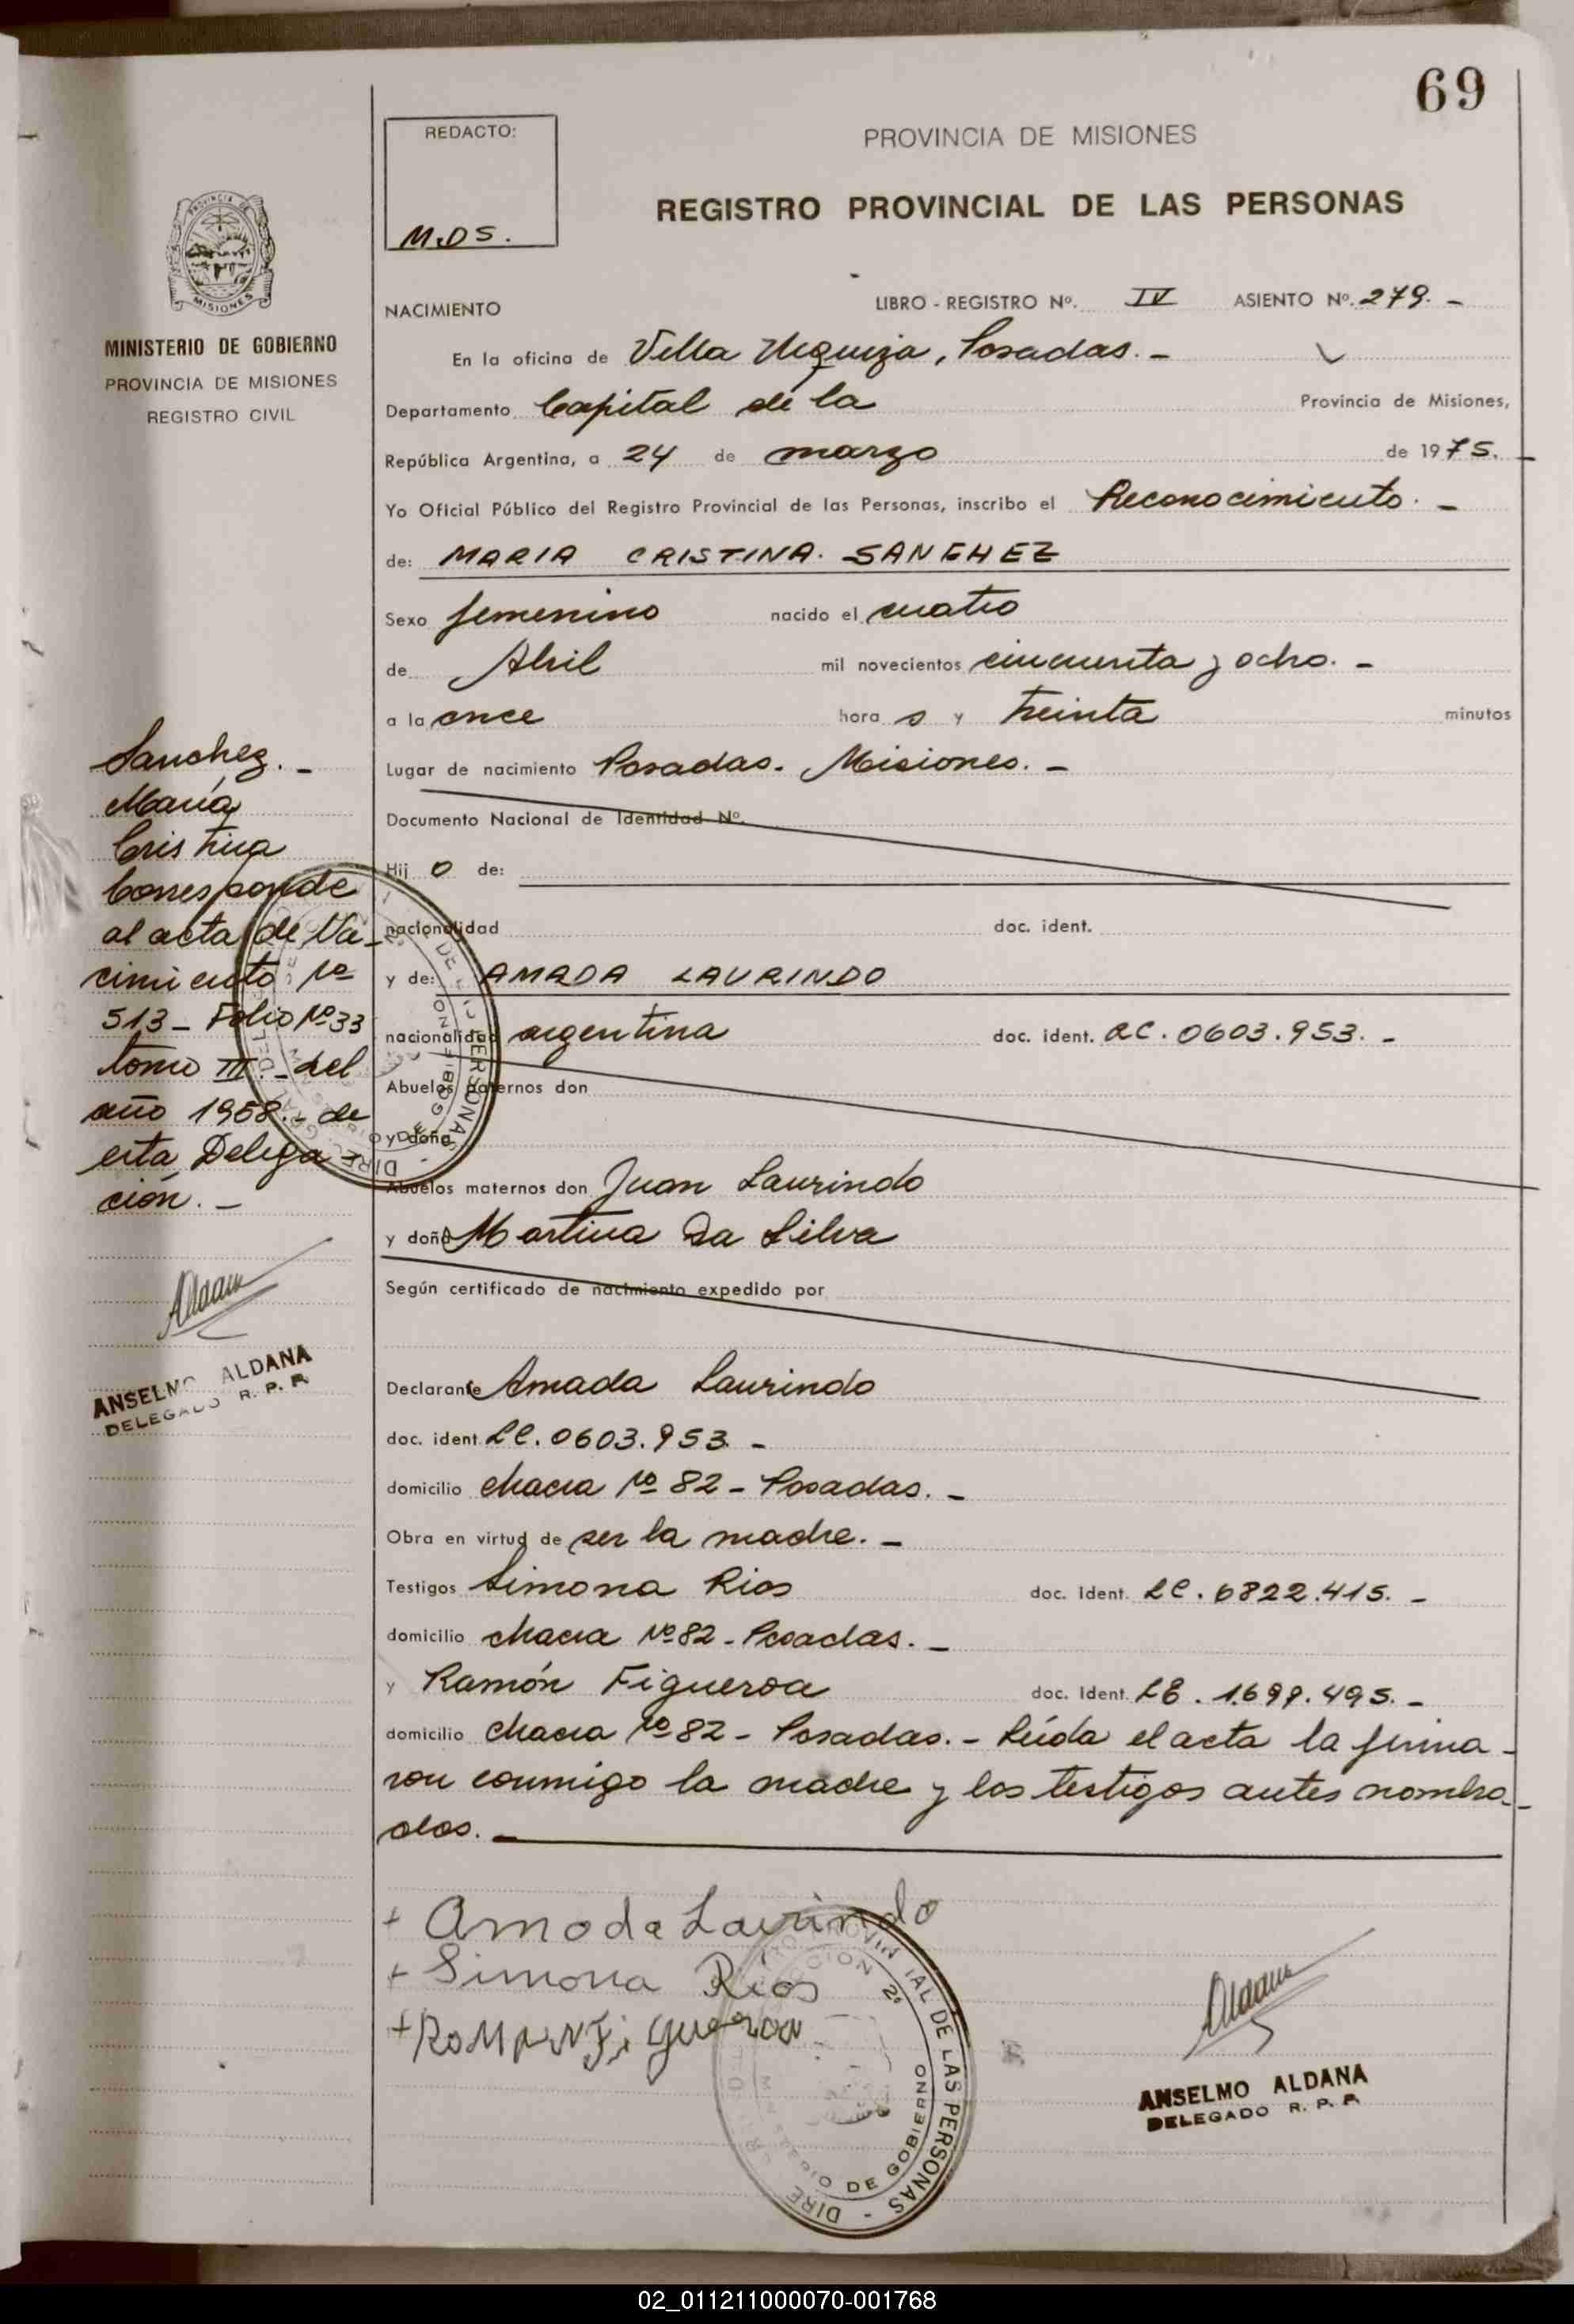 69
REDACTO:
M.D S.
PROVINCIA DE MISIONES
REGISTRO PROVINCIAL DE LAS PERSONAS
PROVINCIA DE
MISIONES
MINISTERIO DE GOBIERNO
PROVINCIA DE MISIONES
REGISTRO CIVIL
NACIMIENTO LIBRO - REGISTRO Nº. IV ASIENTO Nº. 279. -
En la oficina de Villa Urquiza, Posadas. -
Departamento Capital de la Provincia de Misiones,
República Argentina, a 24 de marzo de 1975.
Yo Oficial Público del Registro Provincial de las Personas, inscribo el Reconocimiento. -
de: MARIA CRISTINA. SANCHEZ
Sexo femenino nacido el cuatro
de Abril mil novecientos cincuenta y ocho. -
a la once hora s y treinta minutos
Lugar de nacimiento Posadas. Misiones. -
Documento Nacional de Identidad Nº.
Hij o de:
nacionalidad doc. ident.
y de: AMADA LAURINDO
nacionalidad argentina doc. ident. LC. 0603.953. -
Abuelos paternos don
y doña
Abuelos maternos don Juan Laurindo
y doña Martina Da Silva
Según certificado de nacimiento expedido por
Declarante Amada Laurindo
doc. ident. LC. 0603.953 -
domicilio chacra Nº 82 - Posadas. -
Obra en virtud de ser la madre. -
Testigos Simona Rios doc. ident. LC. 6822.415. -
domicilio chacra Nº 82 - Posadas. -
y Ramón Figueroa doc. Ident. LE. 1.699.495. -
domicilio chacra Nº 82 - Posadas. - Leída el acta la firma-
ron conmigo la madre y los testigos antes nombra-
dos. -
Sanchez. -
María
Cristina
Corresponde
al acta de Na-
cimiento Nº
513 - Folio Nº 33
tomo III - del
año 1958. - de
esta Delega-
ción. -
Aldana
ANSELMO ALDANA
DELEGADO R. P. P.
+ Amada Laurindo
+ Simona Rios
+ RoMAN Figueroa
Aldana
ANSELMO ALDANA
DELEGADO R. P. P.
02_011211000070-001768